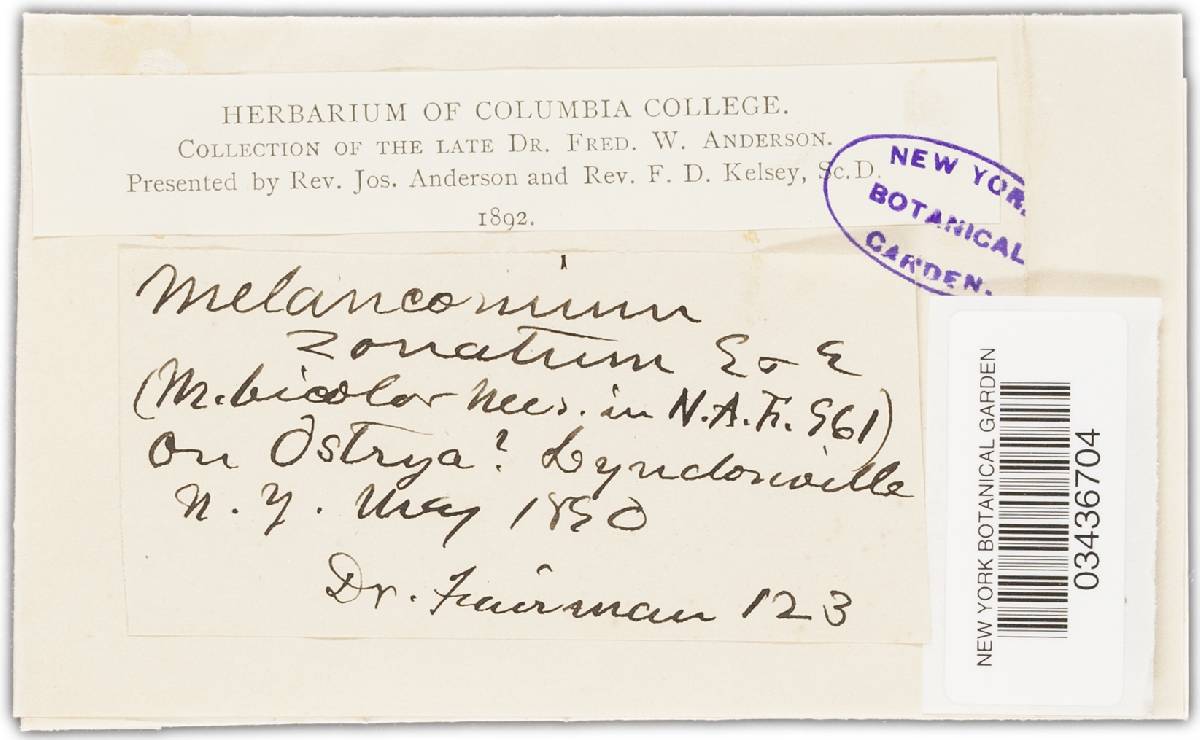 HERBARIUM OF COLUMBIA COLLEGE.
COLLECTION OF THE LATE DR. FRED. W. ANDERSON.
Presented by Rev. Jos. Anderson and Rev. F. D. Kelsey, Sc.D.
1892.
NEW YOR
BOTANICAL
GARDEN.
Melanconium
zonatum E & E
(M. bicolor Nees. in N.A.F. 961)
on Ostrya? Lyndonville
N. Y. May 1890
Dr. Fairman 123
NEW YORK BOTANICAL GARDEN
03436704